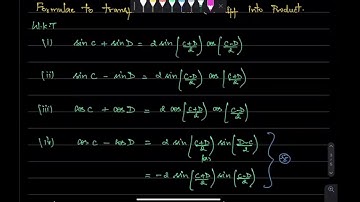 Formulae to transf into Product
W.K.T
(i) sin C + sin D = 2 sin (C+D/2) cos (C-D/2)
(ii) sin C - sin D = 2 sin (C-D/2) cos (C+D/2)
(iii) cos C + cos D = 2 cos (C+D/2) cos (C-D/2)
(iv) cos C - cos D = 2 sin (C+D/2) sin (D-C/2)
(or)
= -2 sin (C+D/2) sin (C-D/2)